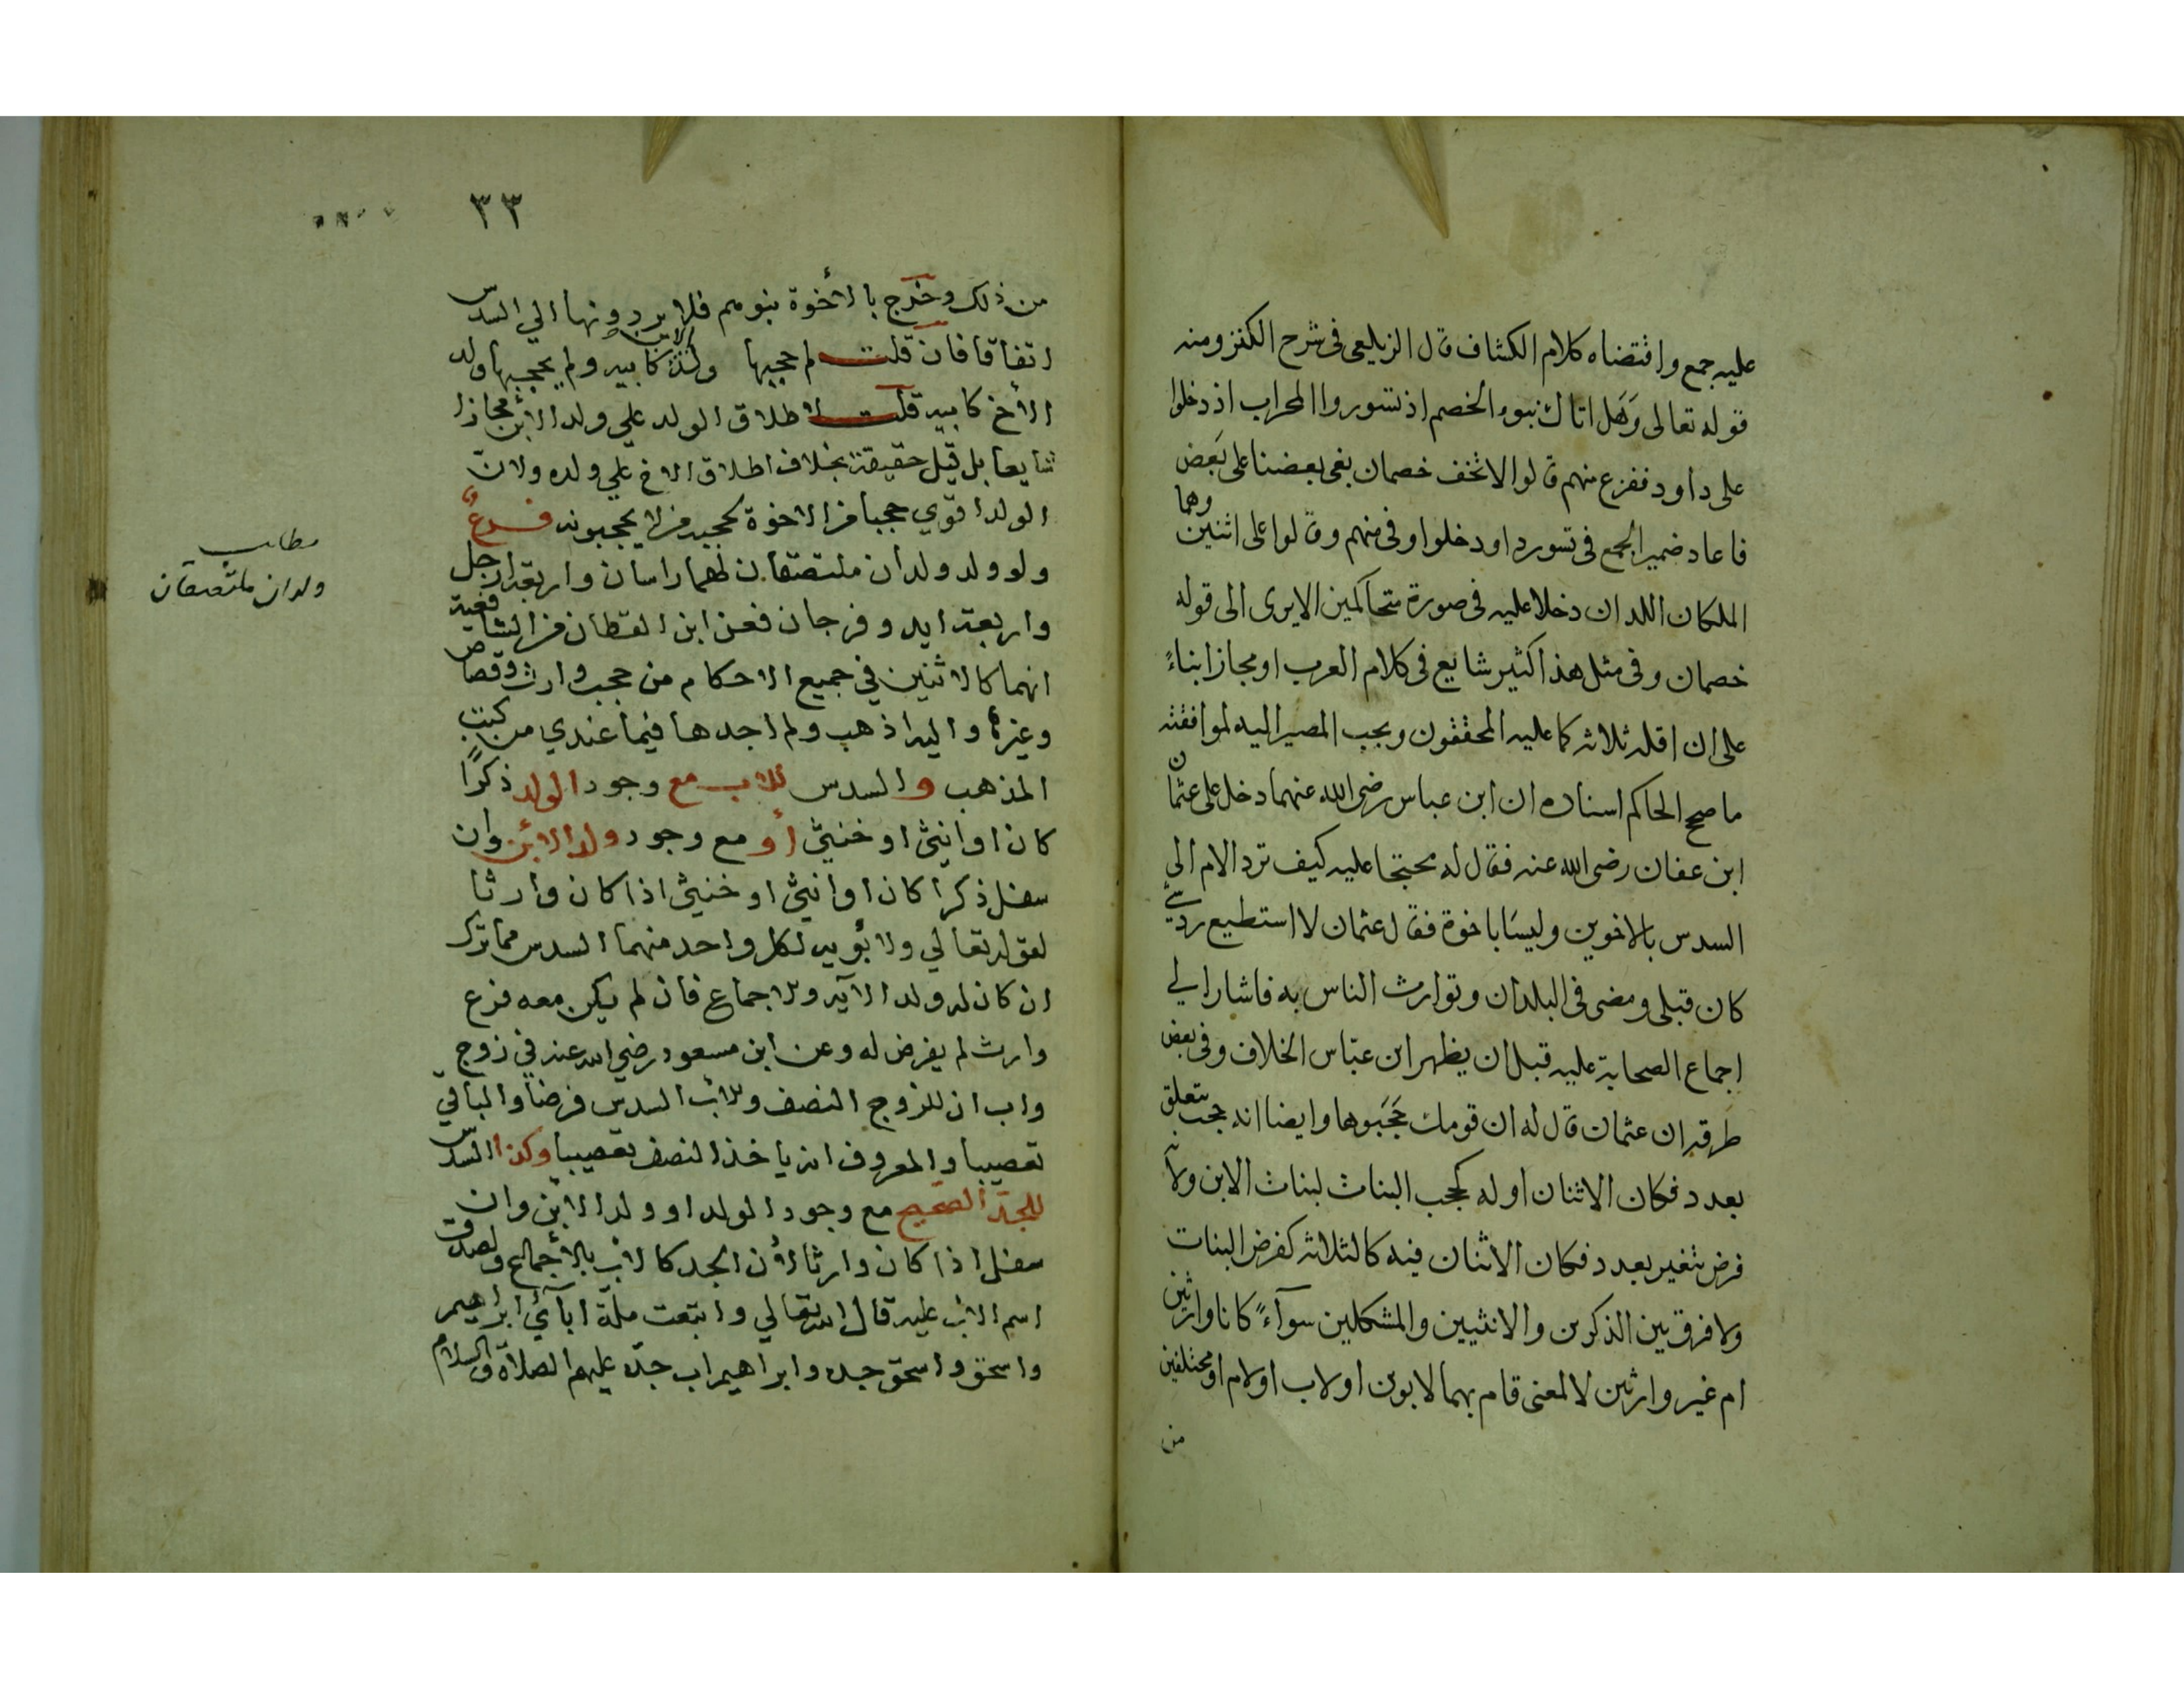 عليه جمع واقتضاه كلام الكشاف قال الزيلعى فى شرح الكنز ومنه
قوله تعالى وَهَل اتاك نبوء الخصم اذ تسوروا المحراب اذ دخلوا
على داود ففزع منهم قالوا لا تخف خصمان بغى بعضنا على بَعض
فاعاد ضمير الجمع فى تسورد اودخلوا وفى منهم وقالوا على اثنين وهما
الملكان اللدان دخلا عليه فى صورة متحاكمين الايرى الى قوله
خصمان وفى مثل هذا كثير شايع فى كلام العرب او مجاز ابناءً
على ان اقله ثلاثه كما عليه المحققون ويجب المصير اليه لموافقته
ما صحح الحاكم اسناده ان ابن عباس رضى الله عنهما دخل على عثمان
ابن عفان رضى الله عنه فقال له محتجا عليه كيف ترد الام الى
السدس بالاخوين وليسَا باخوة فقال عثمان لا استطيع رد شئ
كان قبلى ومضى فى البلدان وتوارث الناس به فاشار الي
اجماع الصحابة عليه قبل ان يظهر ابن عبّاس الخلاف وفى بعض
طرقه ان عثمان قال له ان قومك حَجَبَوها وايضا انه حجب يتعلق
بعدد فكان الاثنان اوله كحجب البنات لبنات الابن ولانه
فرض تتغير بعدد فكان الاثنان فيه كالثلاثه كفرض البنات
ولا فرق بين الذكرين والانثيين والمشكلين سوآءً كانا وارثين
ام غير وارثين لا لمعنى قام بهما لابوين او لاب او لام او مختلفين
من
٣٣
من ذلك وخرج بالأخوة بنوهم فلا يردونها الي السدس
اتفاقا فان قلت لم حجبها ولد الابن كابيه ولم يحجبها ولد
الأخ كابيه قلت لاطلاق الولد علي ولد الأبن مجازا
شايعا بل قيل حقيقة بخلاف اطلاق الاخ علي ولده ولانّ
الولد اقوي حجبا من الاخوة لحجبه من لا يحجبونه فرعٌ
ولو ولد ولدان ملتصقان لهما راسان واربعة ارجل
واربعة ايد وفرجان فعن ابن القطان من الشافعية
انهما كالاثنين في جميع الاحكام من حجب وارث وقصاص
وغيره واليه اذهب ولم اجدها فيما عندي من كتب
المذهب والسدس للاب مع وجود الولد ذكرًا
كان او انثي او خنثي أو مع وجود ولد الأبن وان
سفل ذكرا كان او انثي او خنثي اذا كان وارثا
لقوله تعالي ولأبويه لكل واحد منهما السدس مما ترك
ان كان له ولد الآيه وللاجماع فان لم يكن معه فرع
وارث لم يفرض له وعن ابن مسعود رضي الله عنه في زوج
واب ان للزوج النصف وللأب السدس فرضا والباقي
تعصيبا والمعروف انه ياخذ النصف تعصيبا وكذا السدس
للجد الصحيح مع وجود الولد او ولد الابن وان
سفل اذا كان وارثا لأن الجد كالأب بالأجماع ولصدق
اسم الأب عليه قال الله تعالي واتبعت ملّة اباّئي ابراهيم
واسحق واسحق جده وابراهيم اب جدّه عليهم الصلاة والسلام
مطلب
ولدان ملتصقان